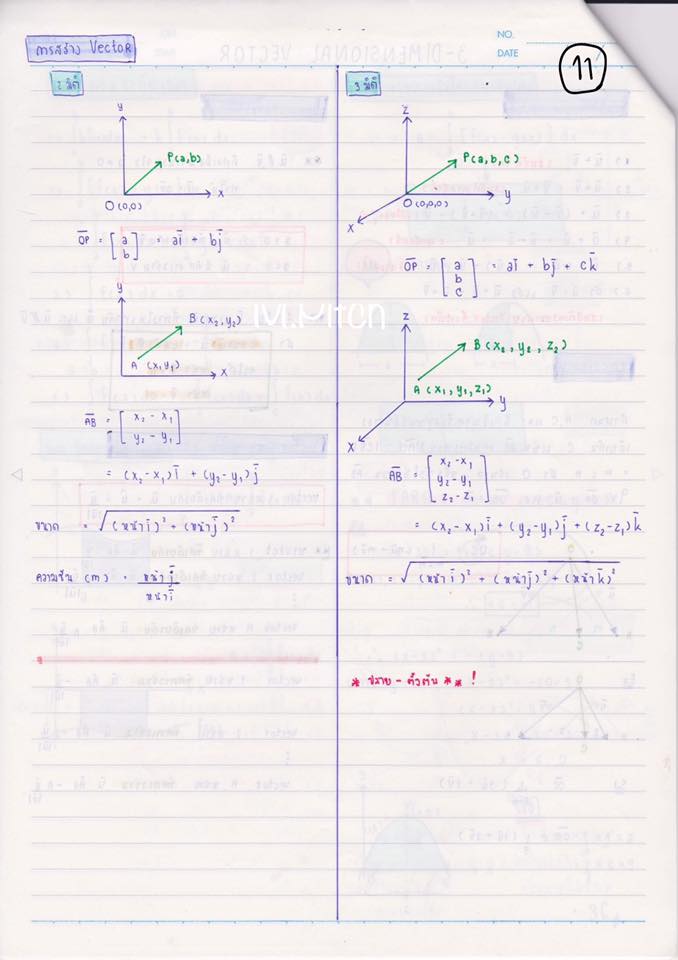 NO.
DATE
11
การสร้าง Vector
2 มิติ
y
P(a,b)
O(0,0)
x
OP̄ = [a b] = aī + bj̄
y
B(x₂,y₂)
A (x₁,y₁)
x
AB̄ = [x₂ - x₁ y₂ - y₁]
= (x₂-x₁)ī + (y₂-y₁)j̄
ขนาด = √(หน้าī)² + (หน้าj̄)²
ความชัน (m) = หน้าj̄ / หน้าī
3 มิติ
z
P(a,b,c)
O(0,0,0)
y
x
OP̄ = [a b c] = aī + bj̄ + ck̄
M.Mitch
z
B(x₂, y₂, z₂)
A(x₁,y₁,z₁)
y
x
AB̄ = [x₂-x₁ y₂-y₁ z₂-z₁]
= (x₂-x₁)ī + (y₂-y₁)j̄ + (z₂-z₁)k̄
ขนาด = √(หน้าī)² + (หน้าj̄)² + (หน้าk̄)²
* ปลาย - ตั้งต้น * * !